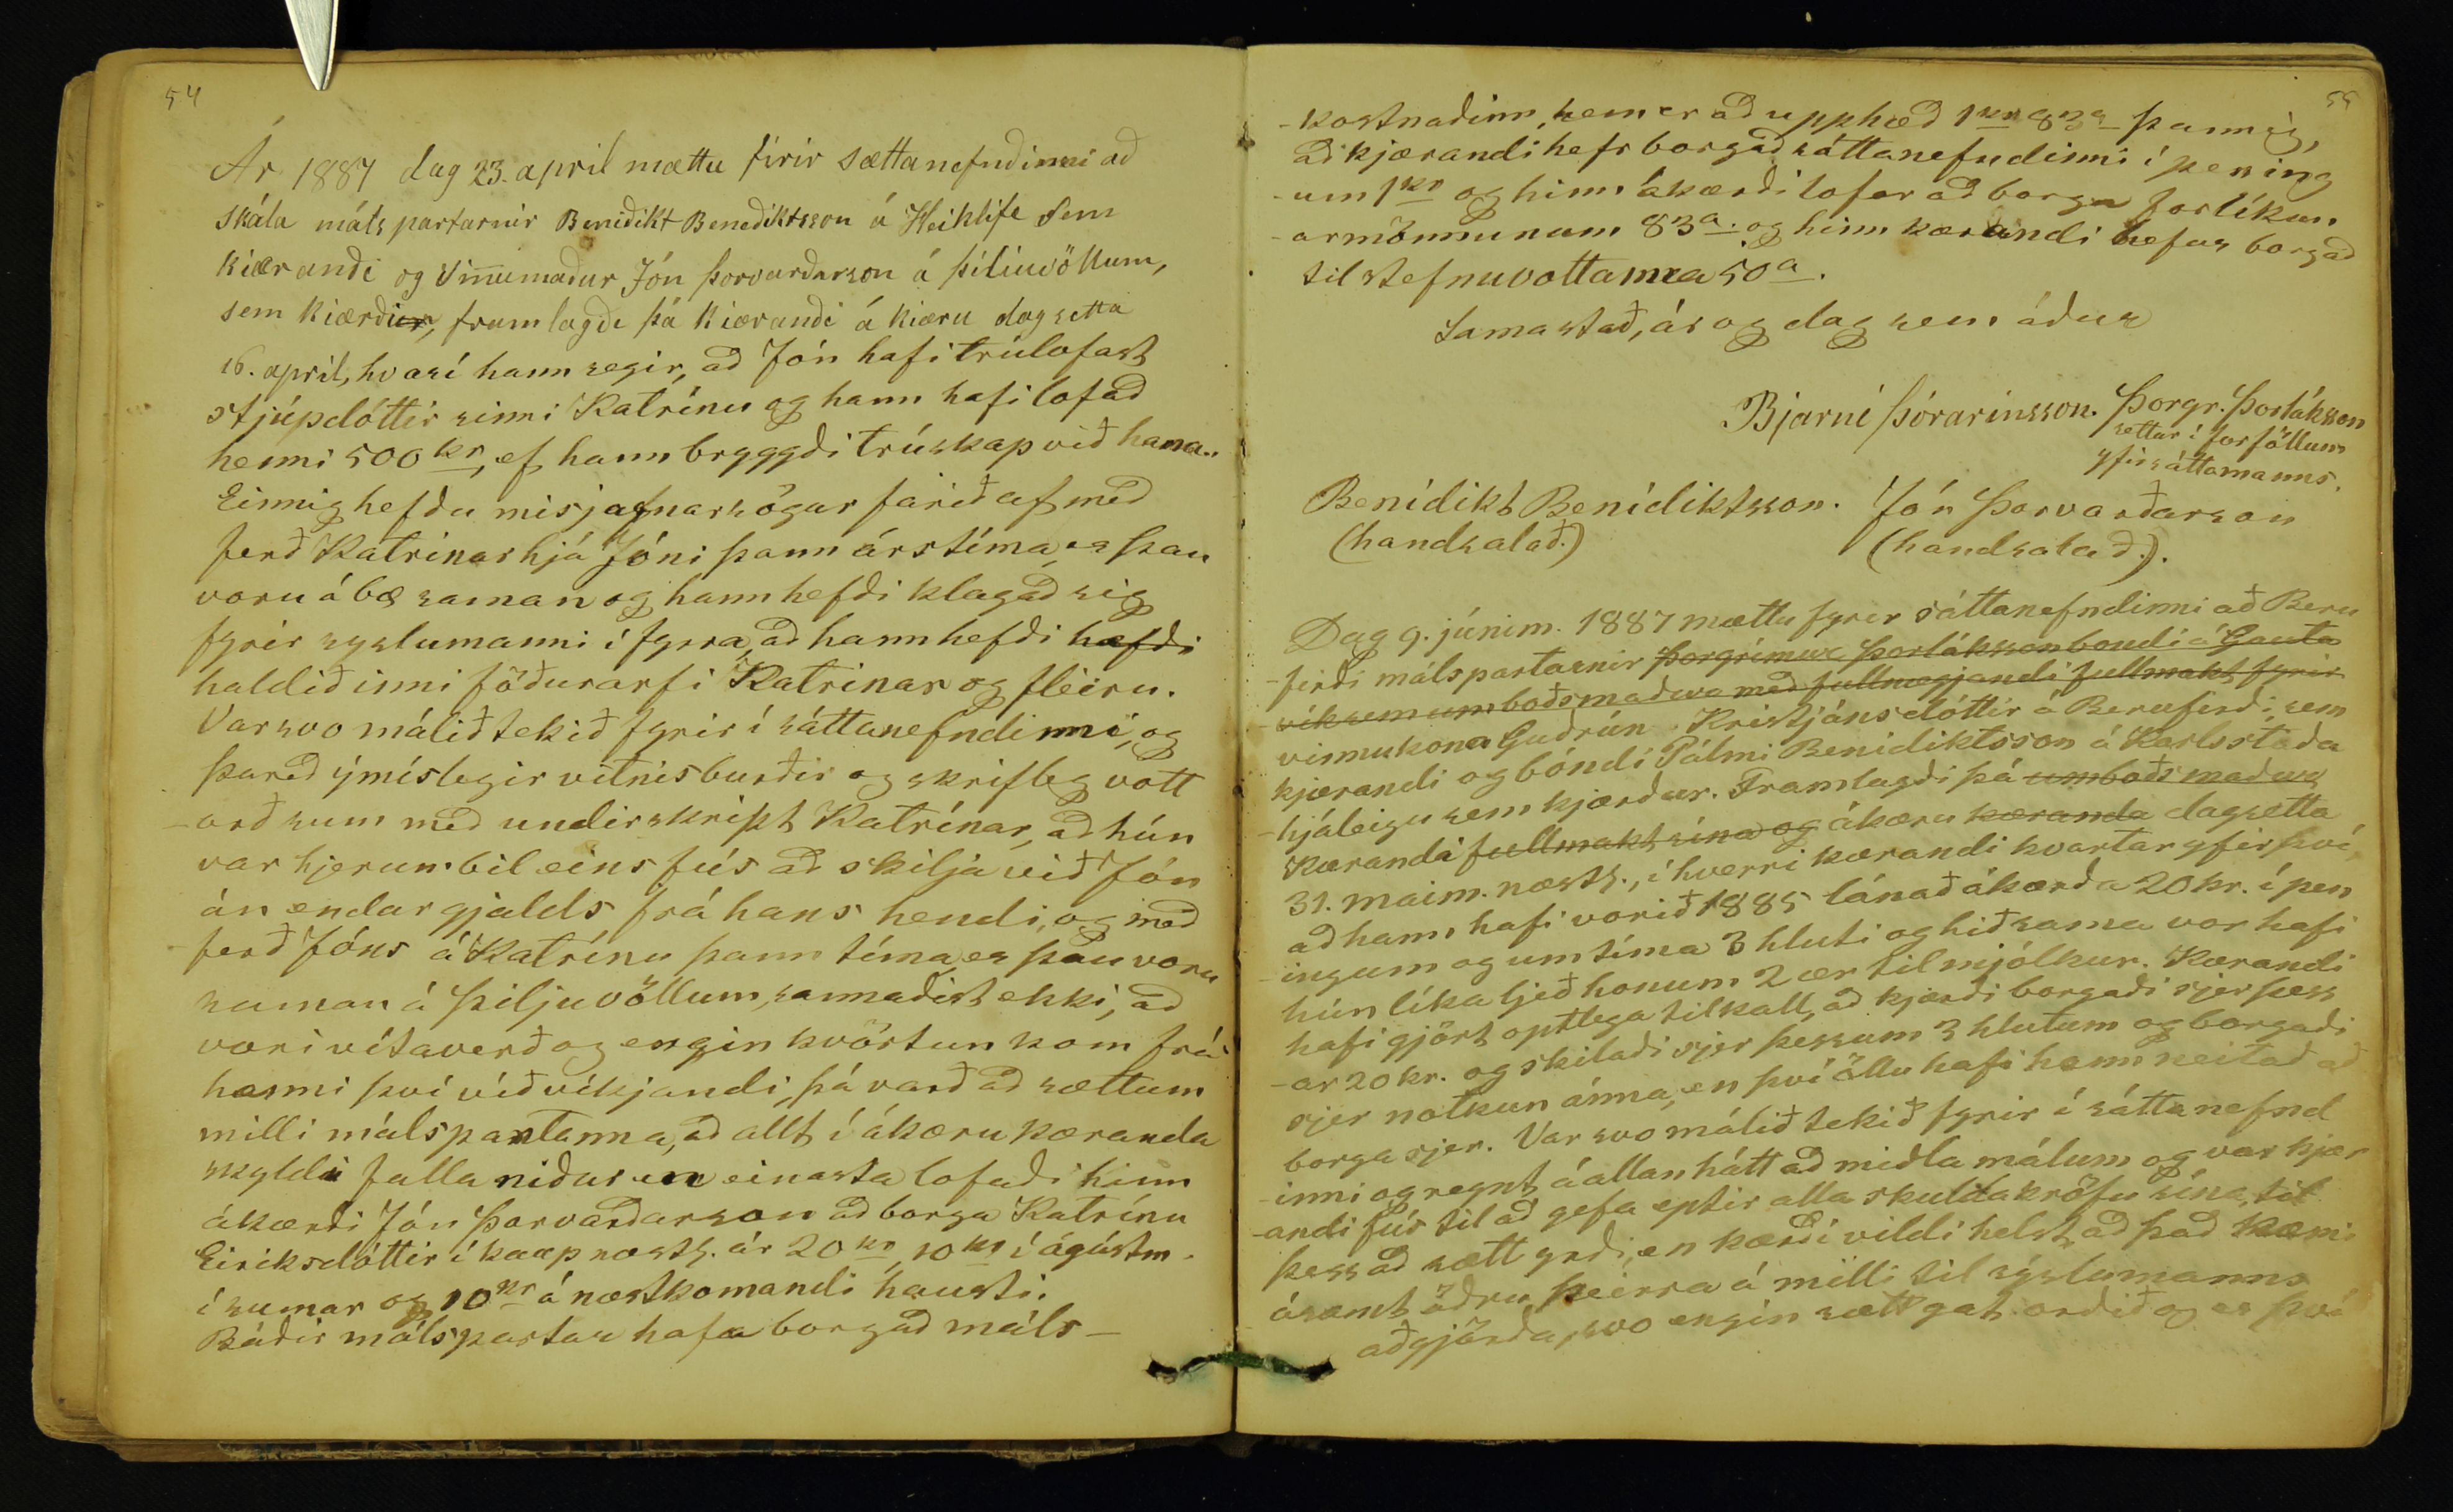 54
Ár 1887 dag 23. apríl mættu firir sættanefndinni að
Skála máls partarnir Benidikt Benediktsson á Heiklife sem
kiærandi og Vinnumadur Jón Þorvarðarson á þiliuvöllum,
sem kiærdur, framlagði þá kiærandi á kiæru dagsetta
16. apríl, hvarí hann segir, að Jón hafi trúlofast
stjúpdóttir sinni Katrínu og hann hafi lofað
henni 500 kr, ef hann brygggði trúskap við hana.
Einnig hefdu misjafnar sögur farið af með
ferð Katrínar hjá Jóni þann árstíma, er þau
voru á bæ saman og hann hefði klagað sig
fyrir syslumanni í fyrra, að hann hefði hefði
haldið inni föðurarfi Katrinar og fleiru.
Var svo málið tekið fyrir í sáttanefndinni, og
þareð ýmislegir vitnisburðir og skrifleg vott
-orð sum með undirskript Katrínar, að hún
var hjerumbil eins fús að skilja við Jón
án endargjalds frá hans hendi, og með
-ferð Jóns á Katrínu þann tíma er þau voru
saman á Þiljuvöllum, sannaðist ekki, að
væri vítaverð og engin kvörtun kom frá
henni því viðvíkjandi, þá varð að sættum
milli málspartanna, að allt í ákæru kæranda
skyldi falla niður en einasta lofaði hinn
ákærði Jón Þorvarðarson að borga Katrínu
Eiríksdóttir í kaup næstl. ár 20 kr, 10 kr í ágústm.
í sumar og 10 kr á næstkomandi hausti.
Báðir málspartar hafa borgað máls-
55
-kostnaðinn, sem er að upphæd 1 kr 83 a þannig,
að kjærandi hefr borgað sáttanefndinni í pening
-um 1 kr og hinn ákærði lofar að borga forlíkun
-armönnunum 83 a. og hinn kærandi hefur borgað
til stefnuvottanna 50 a.
Sama stað, ár og dag sem áður
Bjarni Þórarinsson. Þorgr. Þorláksson
settur í forföllum
yfirsáttamanns.
Benídikt Benídiktsson. Jón Þorvarðarson
(handsalað.) (handsalað.).
Dag 9. júním. 1887 mættu fyrir sáttanefndinni að Beru
-firði málspartarnir Þorgrímur Þorláksson bondi á Gauta
-vík sem umboðsmaður með fullnægjandi fullmakt fyrir
vinnukona Guðrún Kristjánsdóttir á Berufirði, sem
kjærandi og bóndi Pálmi Benidiktsson á Karlsstaða
-hjáleigu sem kjærður. Framlagði þá umboðsmaður
kærandi fullmakt sína og ákæru kæranda dagsetta
31. maim. næstl., í hverri kærandi kvartar yfir því,
að hann hafi vorið 1885 lánað ákærða 20 kr. í pen
-ingum og um tíma 3 hluti og hið sama vor hafi
hún líka ljeð honum 2 ær til mjólkur. Kærandi
hafi gjört optlega tilkall, að kjærði borgaði sjer þess
-ar 20 kr. og skilaði sjer þessum 3 hlutum og borgaði
sjer notkun ánna, en því öllu hafi hann neitað að
borga sjer. Var svo málið tekið fyrir í sáttanefnd
-inni og reynt á allan hátt að miðla málum og var kjær
-andi fús til að gefa eptir alla skuldakröfu sína, til
þess að sætt yrði, en kærði vildi helst, að það kæmi
ásamt öðru þeirra á milli til sýslumanns
aðgjörða, svo engin sætt gat orðið og er því